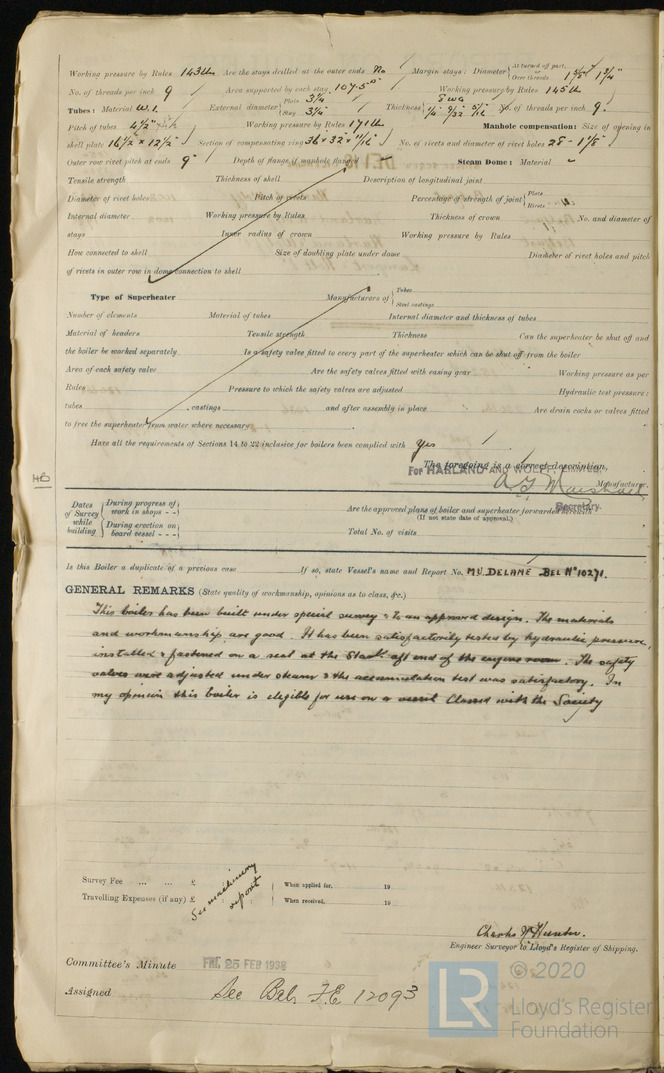 Working pressure by Rules 143 lb Are the stays drilled at the outer ends No Margin stays: Diameter { At turned off part, or Over threads 1 5/8" 1 3/4"
No. of threads per inch 9 Area supported by each stay 107.5 Working pressure by Rules 145 lb
Tubes: Material W.I. External diameter { Plain 3 1/4 Stay 3 1/4" Thickness { 8 WG 1/4" 9/32 5/16 No. of threads per inch 9
Pitch of tubes 4 1/2" Working pressure by Rules 171 lb Manhole compensation: Size of opening in
shell plate 16 1/2" x 12 1/2" Section of compensating ring 36" x 32" x 11/16" No. of rivets and diameter of rivet holes 28 - 1 1/8"
Outer row rivet pitch at ends 9" Depth of flange if manhole flanged Steam Dome: Material -
Tensile strength Thickness of shell Description of longitudinal joint
Diameter of rivet holes Pitch of rivets Percentage of strength of joint { Plate Rivets
Internal diameter Working pressure by Rules Thickness of crown No. and diameter of
stays Inner radius of crown Working pressure by Rules
How connected to shell Size of doubling plate under dome Diameter of rivet holes and pitch
of rivets in outer row in dome connection to shell
Type of Superheater Manufacturers of { Tubes Steel castings
Number of elements Material of tubes Internal diameter and thickness of tubes
Material of headers Tensile strength Thickness Can the superheater be shut off and
the boiler be worked separately Is a safety valve fitted to every part of the superheater which can be shut off from the boiler
Area of each safety valve Are the safety valves fitted with easing gear Working pressure as per
Rules Pressure to which the safety valves are adjusted Hydraulic test pressure:
tubes , castings and after assembly in place Are drain cocks or valves fitted
to free the superheater from water where necessary
Have all the requirements of Sections 14 to 22 inclusive for boilers been complied with Yes
The foregoing is a correct description,
For HARLAND AND WOLFF, LIMITED.
A.F. Marshall Manufacturer.
Secretary.
HB
Dates of Survey while building { During progress of work in shops - - Are the approved plans of boiler and superheater forwarded herewith
(If not state date of approval.)
During erection on board vessel - - - Total No. of visits
Is this Boiler a duplicate of a previous case If so, state Vessel's name and Report No. MV. DELANE BEL No 10271.
GENERAL REMARKS (State quality of workmanship, opinions as to class, &c.)
This boiler has been built under special survey & to an approved design. The materials
and workmanship are good. It has been satisfactorily tested by hydraulic pressure,
installed & fastened on a seat at the Starb aft end of the engine room. The safety
valves were adjusted under steam & the accumulation test was satisfactory. In
my opinion this boiler is eligible for use on a vessel Classed with the Society
Survey Fee ... ... £ When applied for, 19
Travelling Expenses (if any) £ When received, 19
See machinery
report
Charles W Hunter.
Engineer Surveyor to Lloyd's Register of Shipping.
Committee's Minute FRI. 25 FEB 1938
Assigned See Bel. F.E 12093
LR © 2020
Lloyd's Register
Foundation